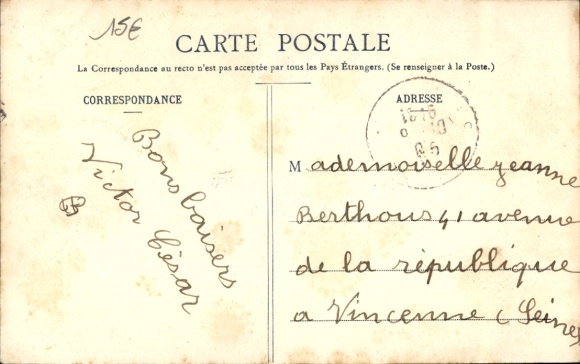 15€
CARTE POSTALE
La Correspondance au recto n'est pas acceptée par tous les Pays Étrangers. (Se renseigner à la Poste.)
CORRESPONDANCE
Bons baisers
Victor César
ADRESSE
Mademoiselle Jeanne
Berthous 41 avenue
de la république
a Vincenne (Seine)